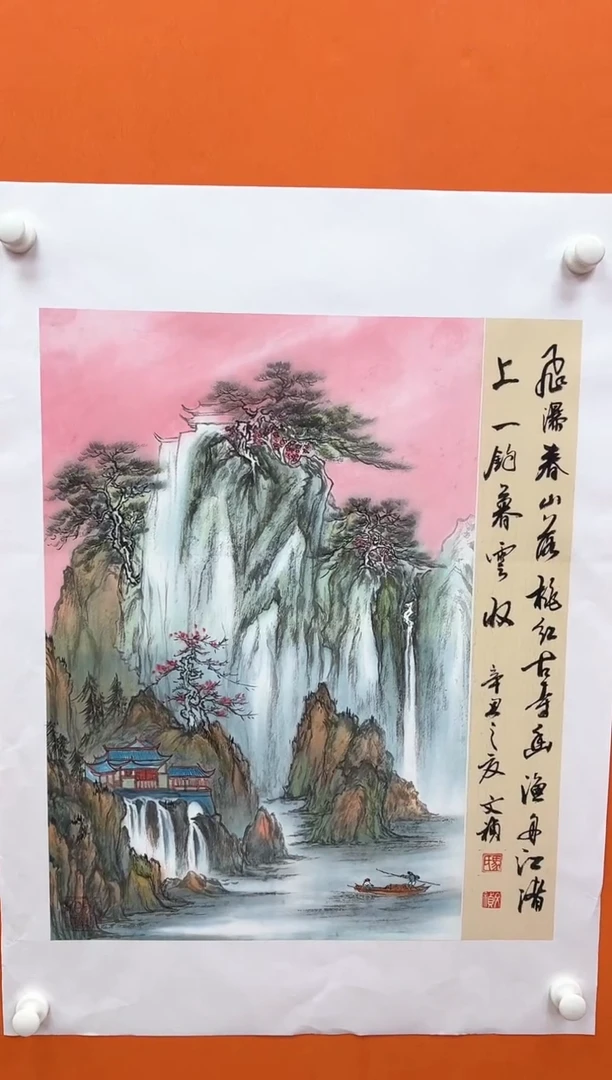 飛瀑春山落桃红古寺幽渔舟江渚
上一钩暮雲收
辛丑之夜文祯